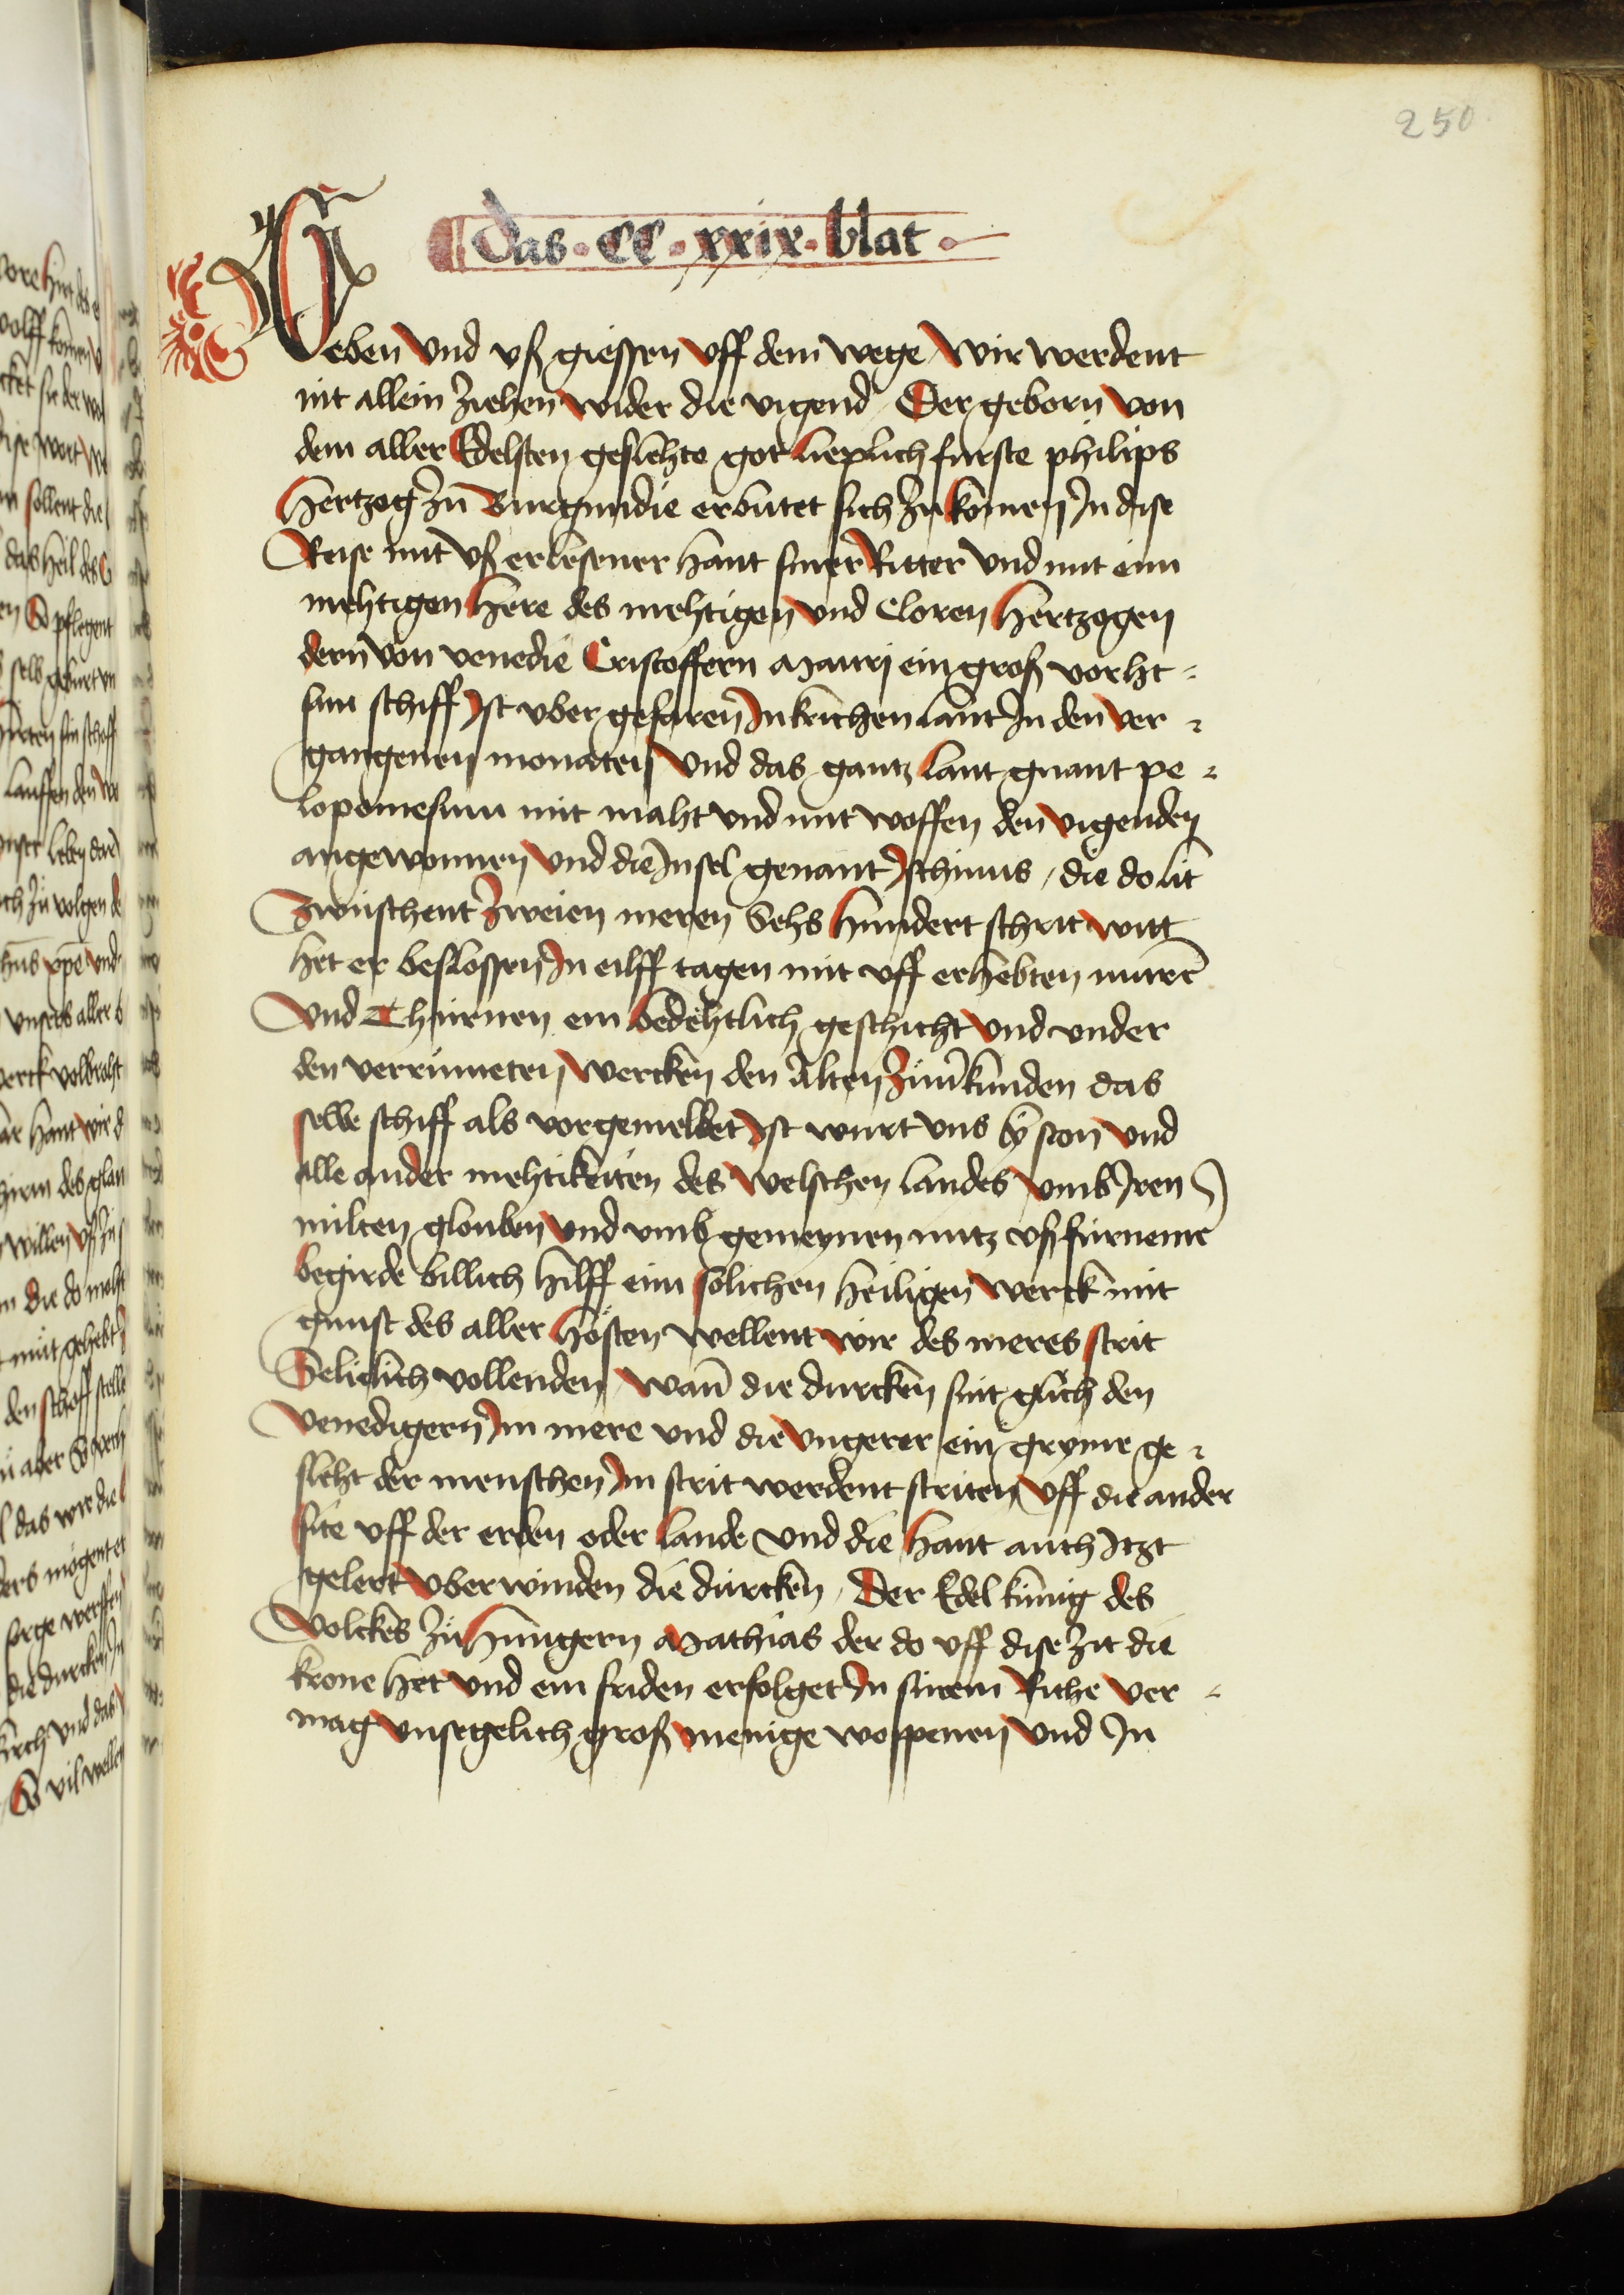 250
das · CC · xxix · blat ·
Geben vnd vß giessen vff dem wege wir werdent
nit allein ziehen wider die vigend Der geborn von
dem aller Edelsten geslehte got lieplich furste philips
hertzog zu Burgundie erbutet sich zu komen In dise
Reise mit vß erlesener hant siner Ritter vnd mit eim
mehtigen here des mehtigen vnd Cloren hertzogen
dern von venedie Cristoffern Mauri ein groß vorht =
sam schiff Ist vber gefaren In krichen lant In den ver =
gangenen monaten vnd das gantz lant gnant pe =
lopomesum mit maht vnd mit woffen den vigenden
angewonnen vnd die Insel genant Isthimus, die do lit
Zwuschent zweien meren Sehs hundert schrit witt
het er beslossen In eilff tagen mit vff erhebten mure
vnd Thurnen ein bedehtlich geschicht vnd vnder
den verrumeten wercken den alten zu verkunden das
selbe schiff als vorgemeldet Ist wurt vns by ston vnd
alle ander mehtikeiten des welschen landes vmb Iren
milten glouben vnd vmb gemeynen nutz vß furneme
begirde billich hilff eim solichen heiligen werck mit
gunst des aller hösten wellent wir des meres strit
Seliclich vollenden wann die durcken sint glich den
venedigern Im mere vnd die vngerer ein gryme ge =
sleht der menschen Im strit werdent striten vff die ander
site vff der erden oder lande vnd die hant auch Itzt
gelert vberwinden die dürcken, Der Edel kunig des
volckes zu Hungern Mathias der do vff dise zit die
krone het vnd ein friden erfolget In sinem Riche ver =
mag vnsegelich groß menige woppenen vnd In